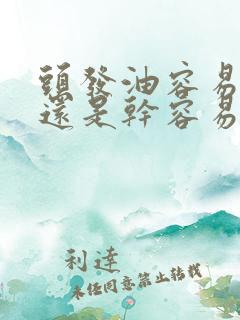 頭發油容易
還是幹容易
利達
未經同意禁止轉載